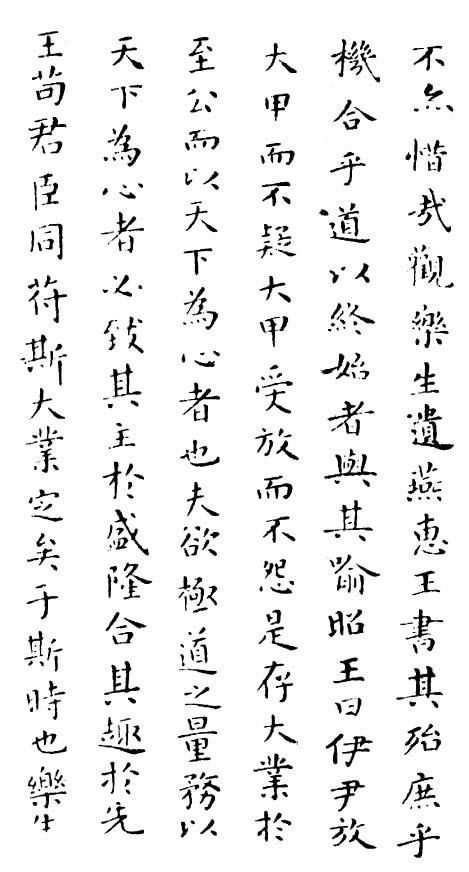 不亦惜哉觀樂生遺燕惠王書其殆庶乎
機合乎道以終始者與其喻昭王曰伊尹放
大甲而不疑大甲受放而不怨是存大業於
至公而以天下為心者也夫欲極道之量務以
天下為心者必致其主於盛隆合其趣於先
王苟君臣同符斯大業定矣于斯時也樂生